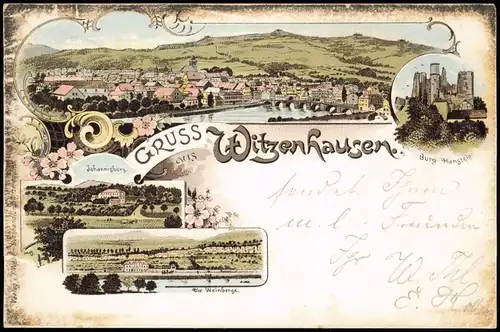 GRUSS
aus
Witzenhausen.
Burg Hanstein
Johannisberg
Die Weinberge
sendet Ihnen
m. l. Freunden
Ihr W. Thl
E.